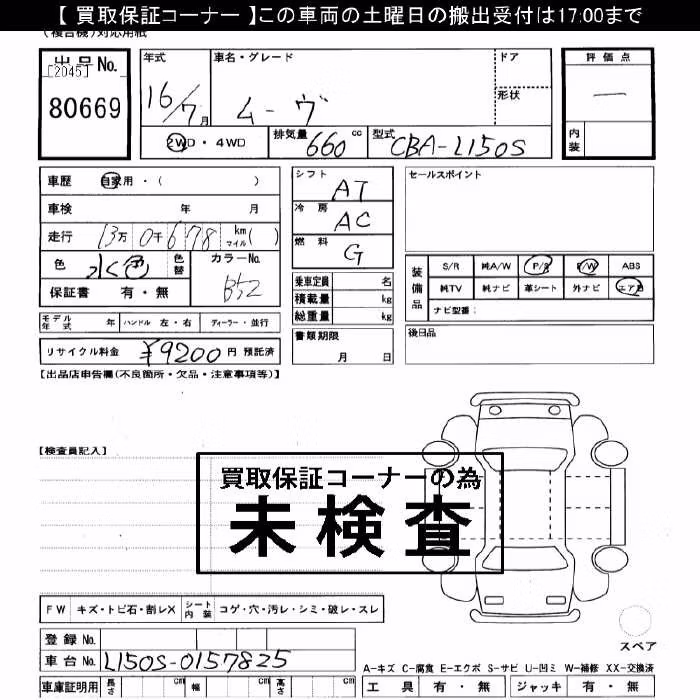 【 買取保証コーナー 】この車両の土曜日の搬出受付は17:00まで
(複合機)対応用紙
出品No.
[2045]
80669
年式
16/7月
車名・グレード
ムーヴ
ドア
形状
評価点
―
内装
2WD・4WD
排気量 660 cc
型式 CBA-L150S
車歴 自家用・( )
車検 年 月
走行 13万 0千 678 km マイル ( )
色 水色
色替
カラーNo.
B52
保証書 有・無
モデル年式 年 ハンドル 左・右 ディーラー・並行
リサイクル料金 ¥9200円 預託済
シフト AT
冷房 AC
燃料 G
乗車定員 名
積載量 kg
総重量 kg
書類期限
月 日
セールスポイント
装備品
S/R 純A/W P/S P/W ABS
純TV 純ナビ 革シート 外ナビ エアB
ナビ型番:
後日品
【出品店申告欄(不良箇所・欠品・注意事項等)】
【検査員記入】
買取保証コーナーの為
未検査
FW キズ・トビ石・割レX シート内装 コゲ・穴・汚レ・シミ・破レ・スレ
登録No.
車台No. L150S-0157825
車庫証明用 長さ cm 幅 cm 高さ cm
スペア
A-キズ C-腐食 E-エクボ S-サビ U-凹ミ W-補修 XX-交換済
工具 有・無 ジャッキ 有・無